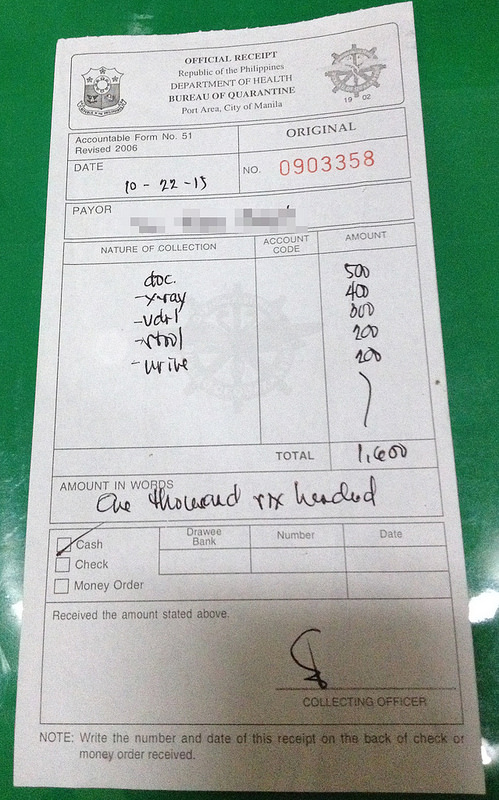 OFFICIAL RECEIPT
Republic of the Philippines
DEPARTMENT OF HEALTH
BUREAU OF QUARANTINE
Port Area, City of Manila
19 02
Accountable Form No. 51
Revised 2006
ORIGINAL
DATE
10 - 22 - 15
NO. 0903358
PAYOR
NATURE OF COLLECTION ACCOUNT CODE AMOUNT
doc. 500
-x-ray 400
-vdrl 300
-stool 200
-urine 200
TOTAL 1,600
AMOUNT IN WORDS
One thousand six hundred
Cash
Check
Money Order
Drawee Bank Number Date
Received the amount stated above.
COLLECTING OFFICER
NOTE: Write the number and date of this receipt on the back of check or
money order received.